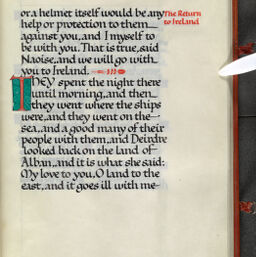 or a helmet itself would be any
help or protection to them
against you, and I myself to
be with you. That is true, said
Naoise, and we will go with
you to Ireland.
The Return
to Ireland
THEY spent the night there
until morning, and then
they went where the ships
were, and they went on the
sea, and a good many of their
people with them, and Deirdre
looked back on the land of
Alban, and it is what she said:
My love to you, O land to the
east, and it goes ill with me